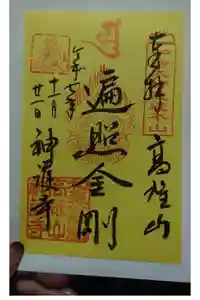 奉拝
高雄山
遍照金剛
令和七年
十一月
廿一日
神護寺